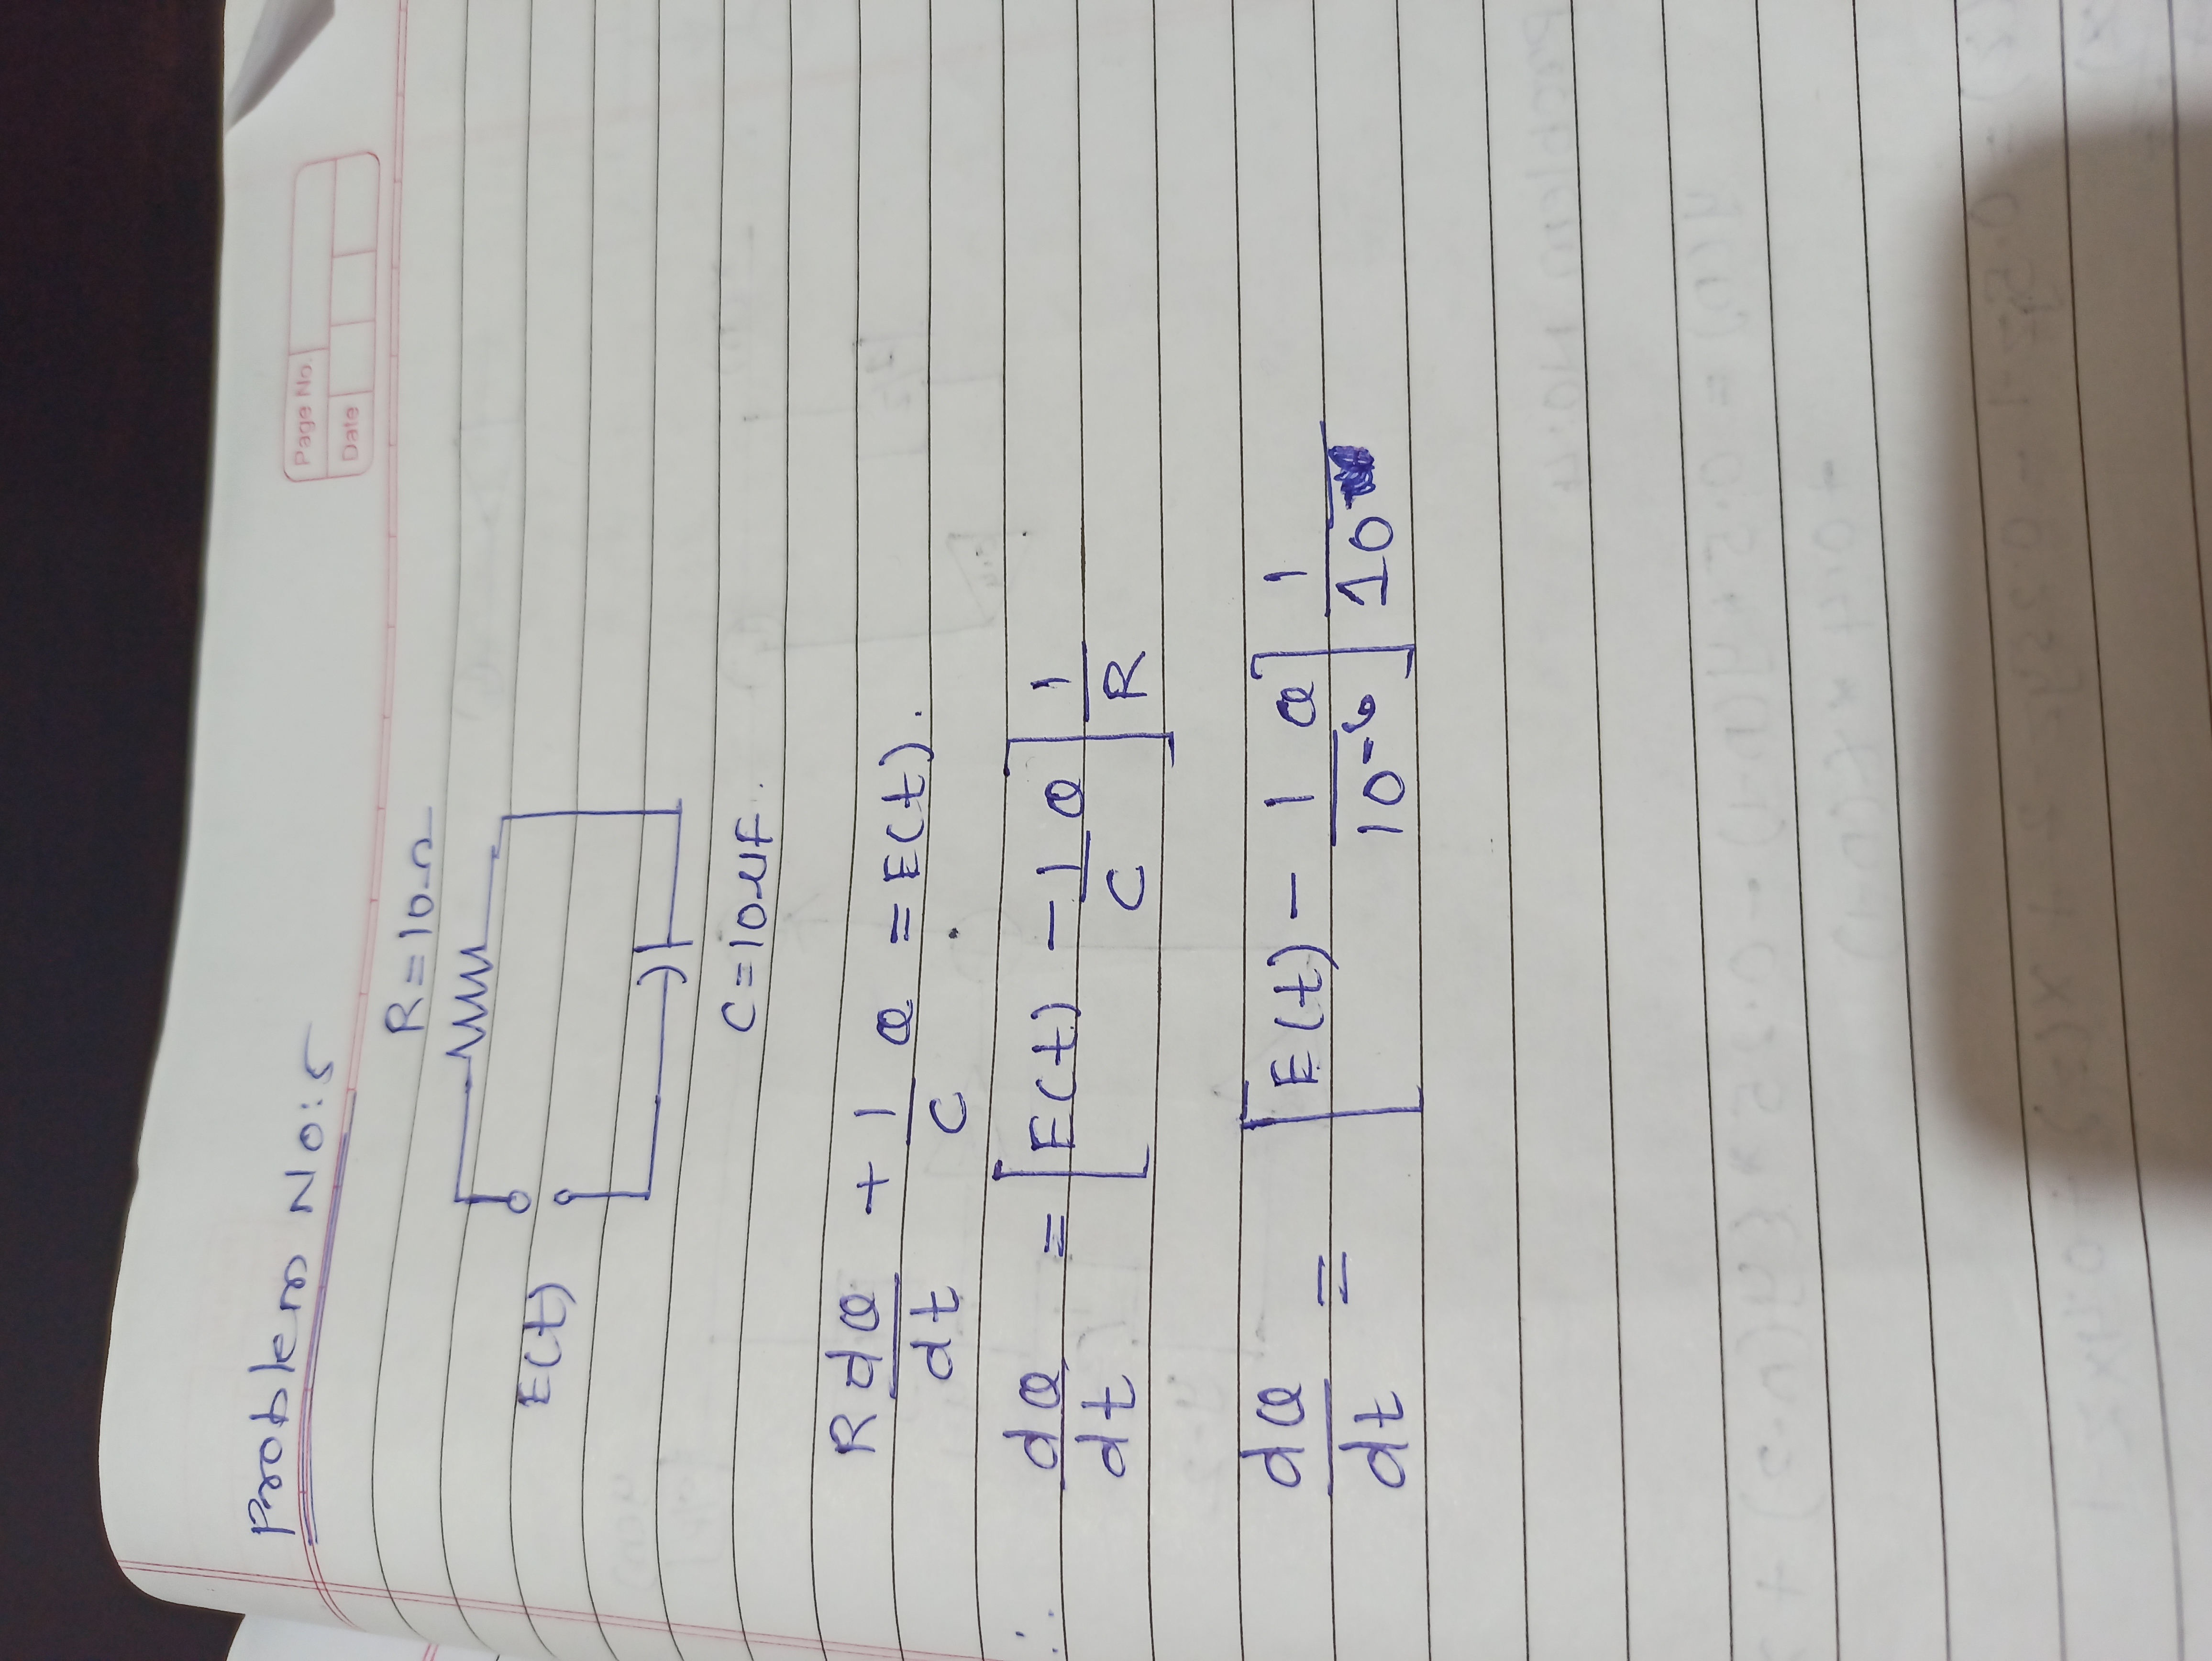 Problem No:5
Page No.
Date
R=10Ω
E(t)
C=10μF.
R dQ/dt + 1/C Q = E(t).
∴ dQ/dt = [E(t) - 1/C Q] 1/R
dQ/dt = [E(t) - 1/10^-6 Q] 1/10